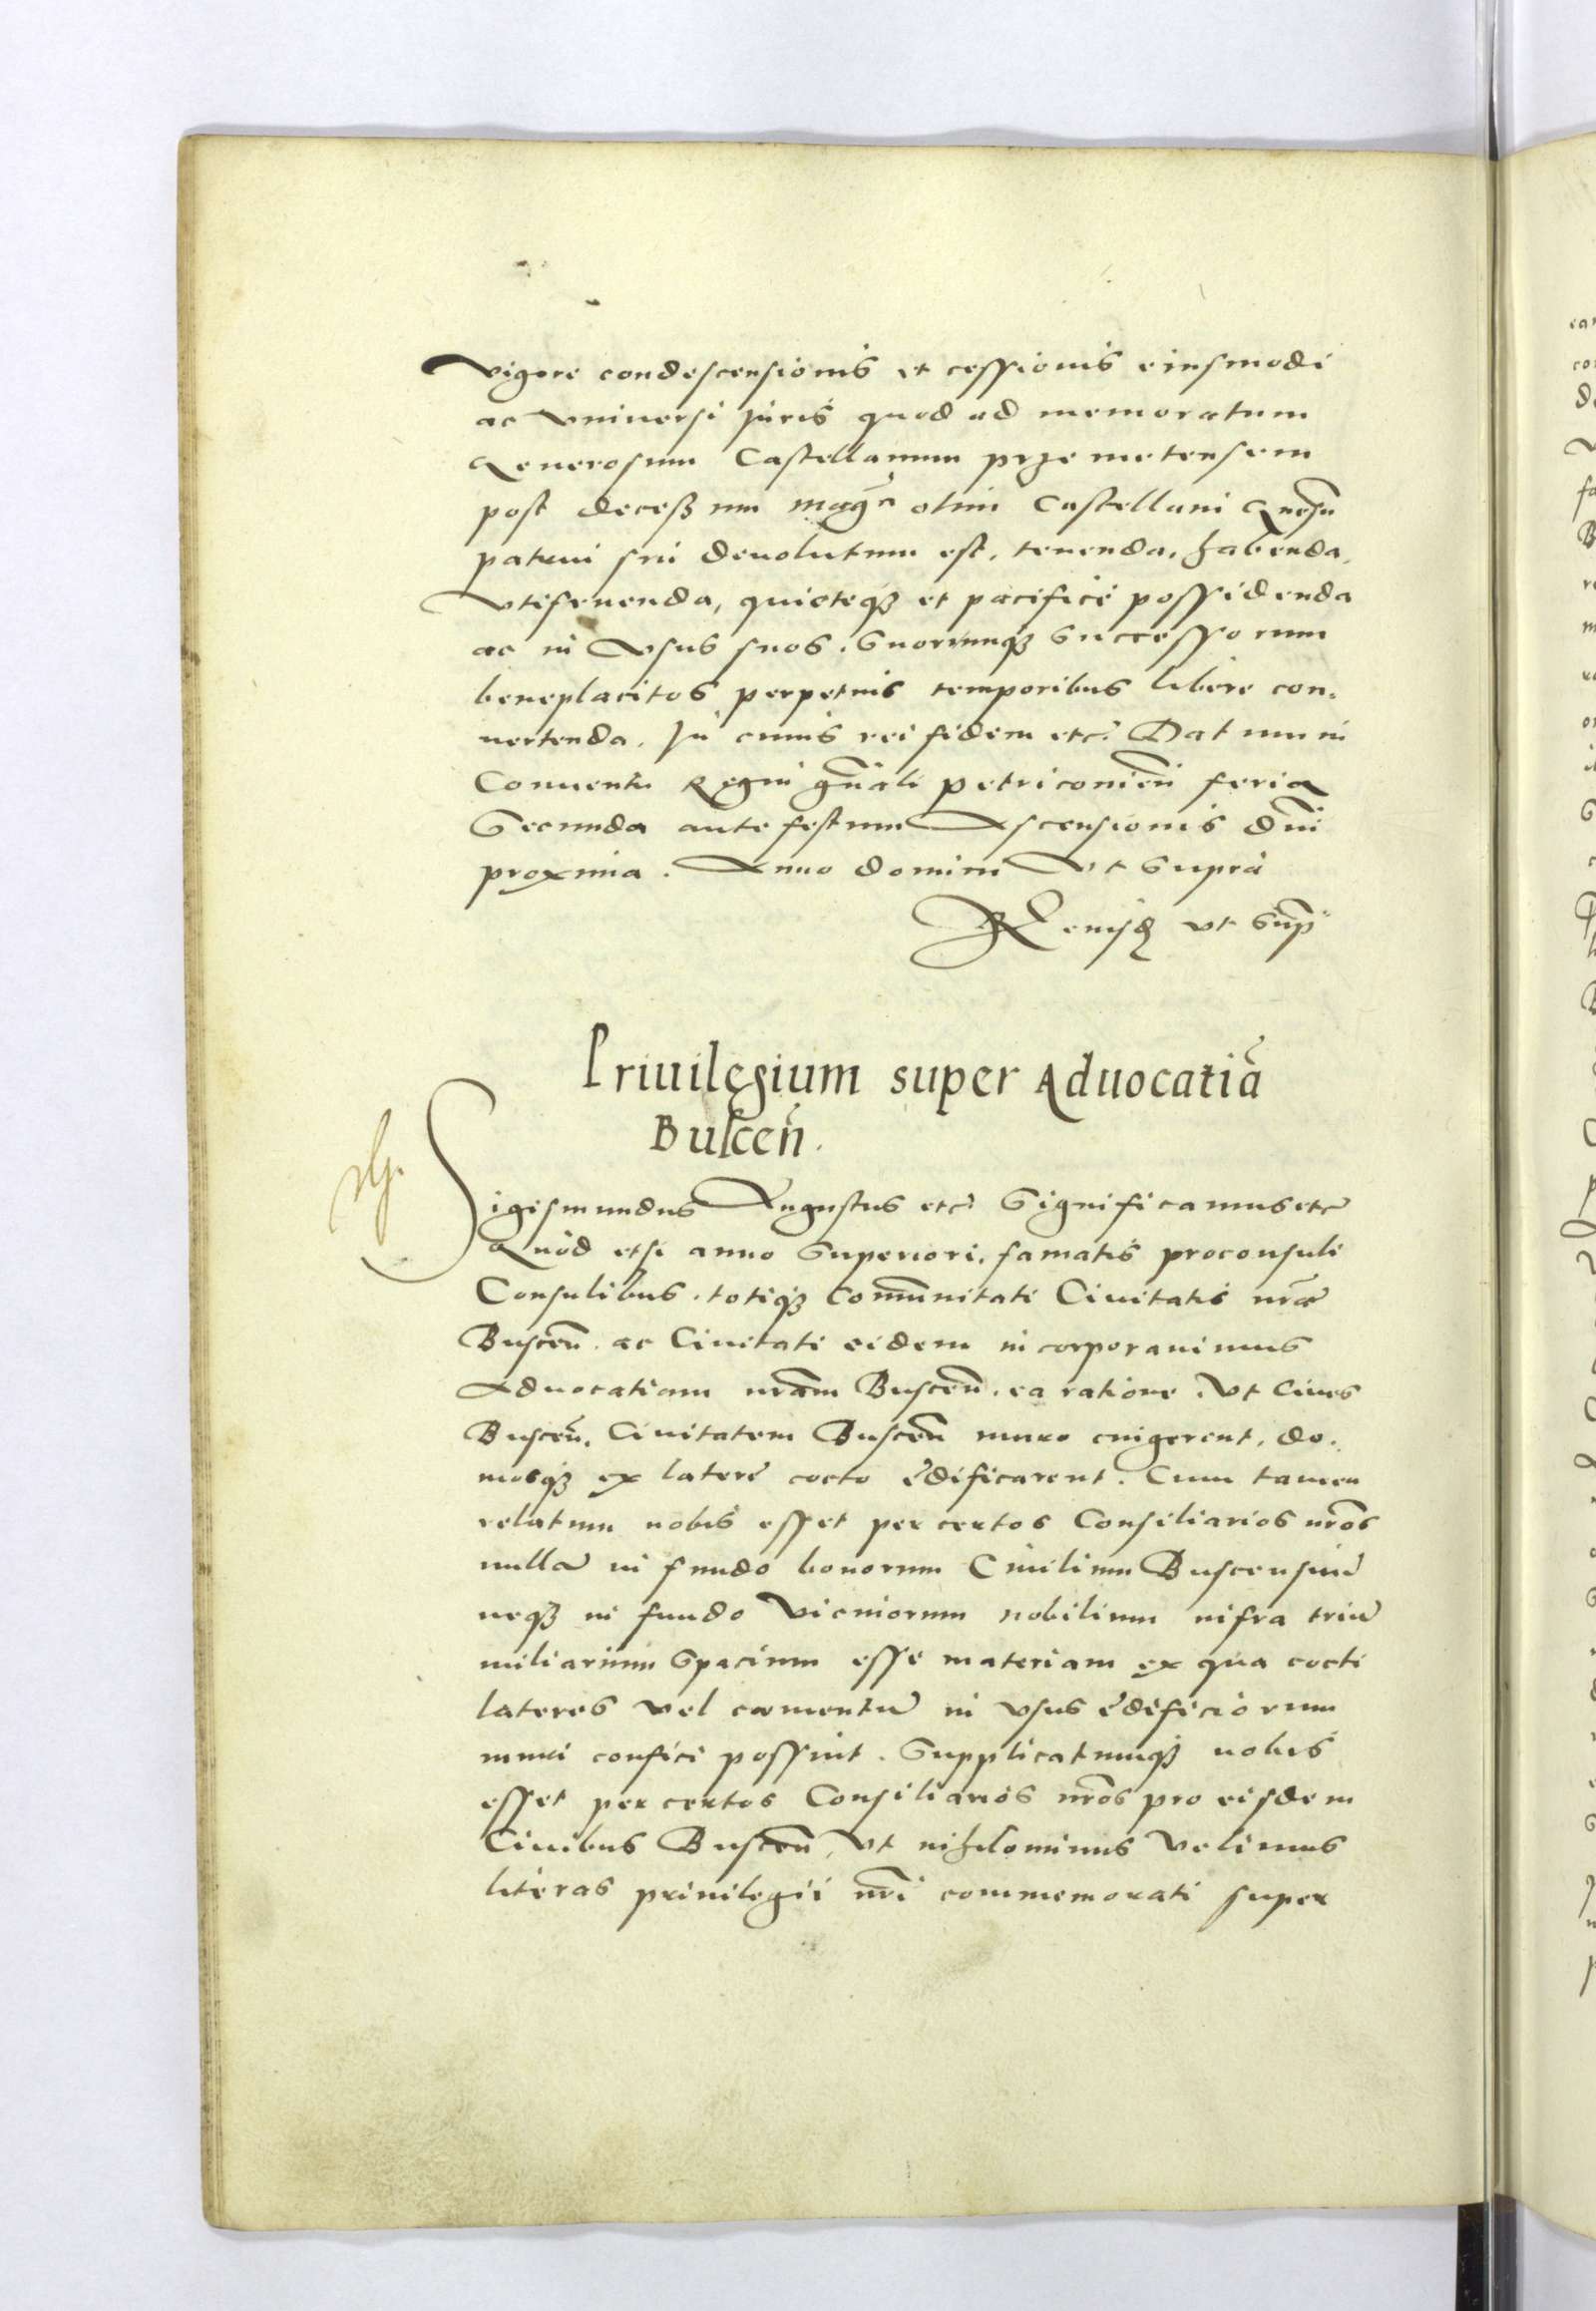 vigore condescensionis et cessionis eiusmodi
ac vniuersi iuris quod ad memoratum
Generosum Castellanum przemetensem
post decessum magci olim Castellani Gnesn
patrui sui deuolutum est, tenenda, habenda,
vtifruenda, quieteque et pacifice possidenda
ac in vsus suos, Suorumque Successorum
beneplacitos perpetuis temporibus libere con-
uertenda. In cuius rei fidem etc. Datum in
Conuentu Regni gnali petriconien feria
Secunda ante festum Ascensionis dni
proxima. Anno domini vt Supra
vt Sup
Priuilegium super Aduocatia
Buscen.
Sigismundus Augustus etc Significamus etc
Quod etsi anno Superiori, famatis proconsuli
Consulibus, totique comunitati Ciuitatis nrae
Buscen. ac Ciuitati eidem incorporauimus
Aduocatiam nram Buscen. ea ratione, vt Ciues
Buscen. Ciuitatem Buscen muro cingerent, do-
mosque ex latere cocto edificarent. Cum tamen
relatum nobis esset per certos Consiliarios nros
nulla in fundo bonorum Ciuilium Buscensiu
neque in fundo vicinorum nobilium infra triu
miliarium Spacium esse materiam ex qua cocti
lateres vel caementu in vsus edificiorum
muri confici possint. Supplicatumque nobis
esset per certos Consiliarios nros pro eisdem
Ciuibus Buscen, vt nihilominus velimus
literas priuilegii nri commemorati super